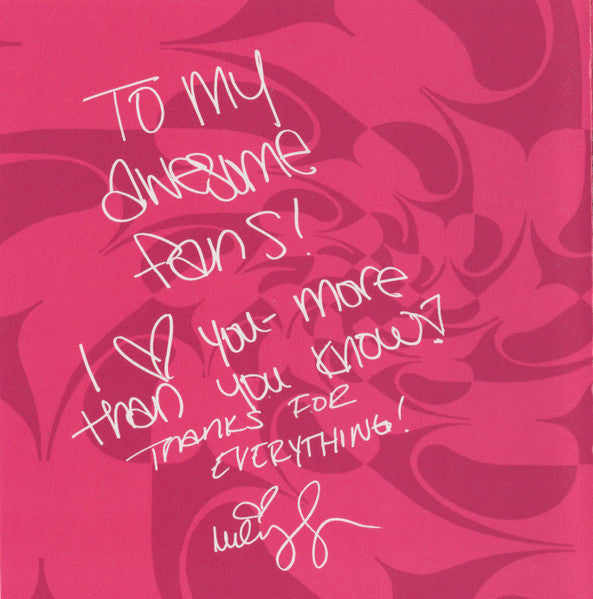 TO MY
awesome
fans!
I ♡ you- more
than you know!
THANKS FOR
EVERYTHING!